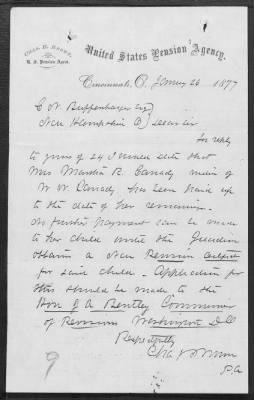 United States Pension Agency,
U. S. Pension Agent.
Cincinnati, O. 26 1877
New Hampshire O Dear Sir
In reply
to yours of 24 I would state that
Mrs Martha R. Canady widow of
W W Canady has been paid up
to the date of her remarriage.
No further payment can be made
to her child until the Guardian
obtains a New Pension Certificate
for said child. Application for
this should be made to the
Hon J A Bentley Commissioner
of Pensions Washington D.C.
Respectfully
P.A
9